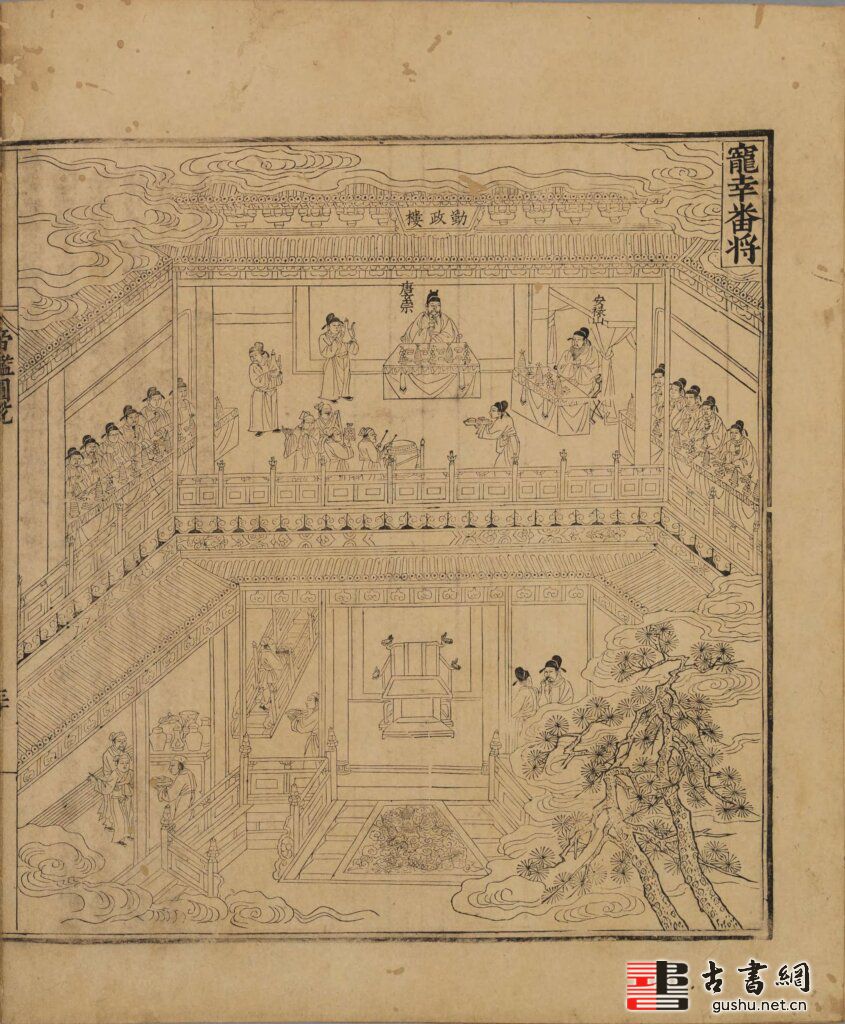 寵幸番将
勤政樓
唐玄宗
安禄山
帝鑑圖說
古書網
gushu.net.cn